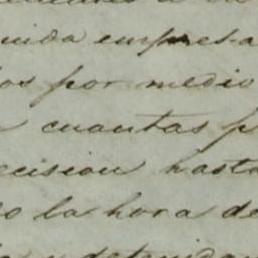 uida empresa
os por medio
cuantas p
ecision hasta
o la hora de